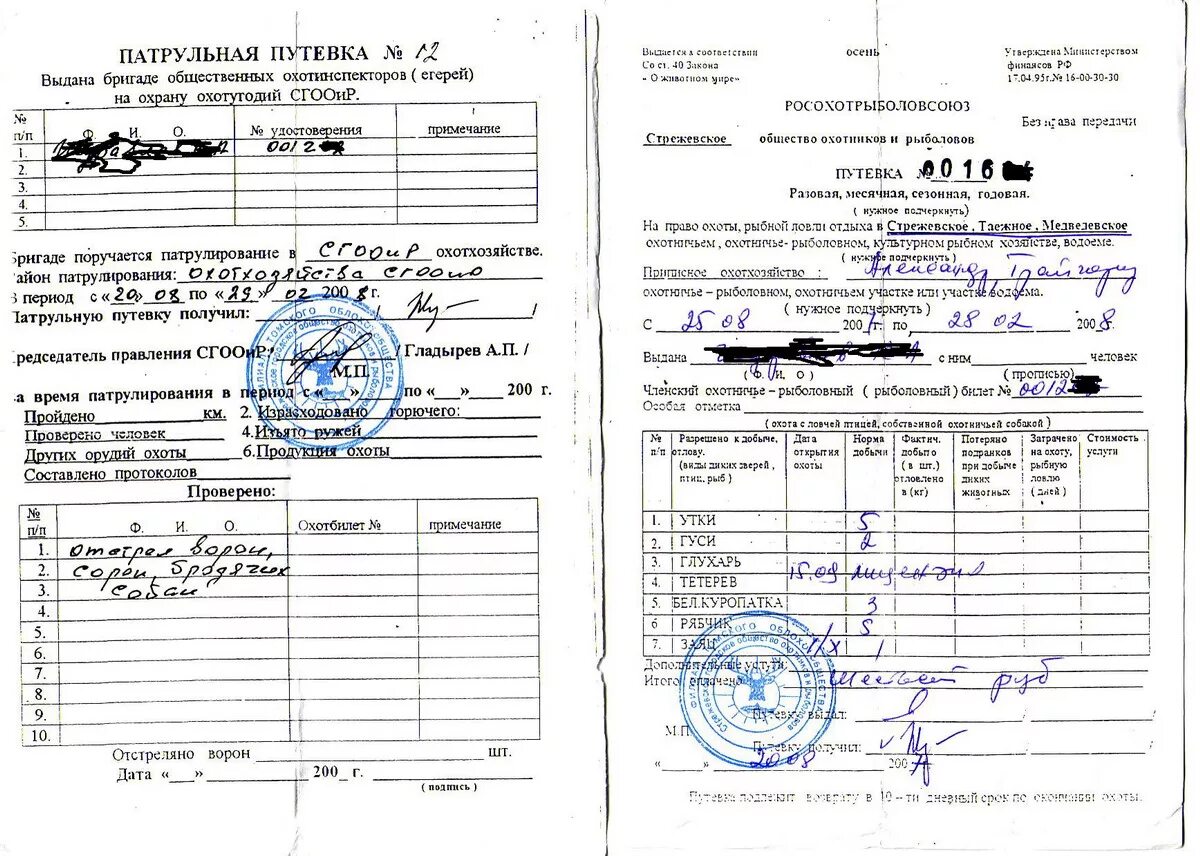 ПАТРУЛЬНАЯ ПУТЕВКА № 12
Выдана бригаде общественных охотинспекторов ( егерей)
на охрану охотугодий СГООиР.
№ п/п Ф. И. О. № удостоверения примечание
1. 0012
2.
3.
4.
5.
Бригаде поручается патрулирование в СГООиР охотхозяйстве.
айон патрулирования: охотхозяйства СГООиР
В период с «20» 08 по «29» 02 2008 г.
Патрульную путевку получил: / /
редседатель правления СГООиР / / Гладырев А.П. /
М.П.
а время патрулирования в период с «___» по «___» ____ 200 г.
Пройдено км. 2. Израсходовано горючего:
Проверено человек 4.Изъято ружей
Других орудий охоты 6.Продукция охоты
Составлено протоколов
Проверено:
№ п/п Ф. И. О. Охотбилет № примечание
1. отстрел ворон,
2. сорок, бродячих
3. собак
4.
5.
6.
7.
8.
9.
10.
Отстреляно ворон шт.
Дата «___» 200_ г.
( подпись )
Выдается в соответствии
Со ст. 40 Закона
« О животном мире»
осень
Утверждена Министерством
финансов РФ
17.04.95г.№ 16-00-30-30
РОСОХОТРЫБОЛОВСОЮЗ
Без права передачи
Стрежевское общество охотников и рыболовов
ПУТЕВКА № 0016
Разовая, месячная, сезонная, годовая.
( нужное подчеркнуть)
На право охоты, рыбной ловли отдыха в Стрежевское , Таежное , Медведевское
охотничьем , охотничье- рыболовном, культурном рыбном хозяйстве, водоеме.
( нужное подчеркнуть )
Приписное охотхозяйство :
охотничье – рыболовном, охотничьем участке или участке водоема.
( нужное подчеркнуть )
С 25 08 2007г. по 28 02 2008.
Выдана с ним человек
( Ф. И. О ) ( прописью)
Членский охотничье – рыболовный ( рыболовный ) билет № 0012
Особая отметка
( охота с ловчей птицей, собственной охотничьей собакой )
№ п/п Разрешено к добыче, отлову. (виды диких зверей , птиц, рыб ) Дата открытия охоты Норма добычи Фактич. добыто ( в шт.) отловлено в (кг) Потеряно подранков при добыче диких животных Затрачено на охоту, рыбную ловлю ( дней ) Стоимость услуги
1. УТКИ 5
2. ГУСИ 2
3. ГЛУХАРЬ
15.09 лицензия
4. ТЕТЕРЕВ
5. БЕЛ.КУРОПАТКА 3
6 РЯБЧИК 5
7. ЗАЯЦ 1/X 1
Дополнительные услуги:
Итого оплачено руб
Путевку выдал: / /
М.П.
Путевку получил: / /
« » 2008 2007
Путевка подлежит возврату в 10 – ти дневный срок по окончании охоты.